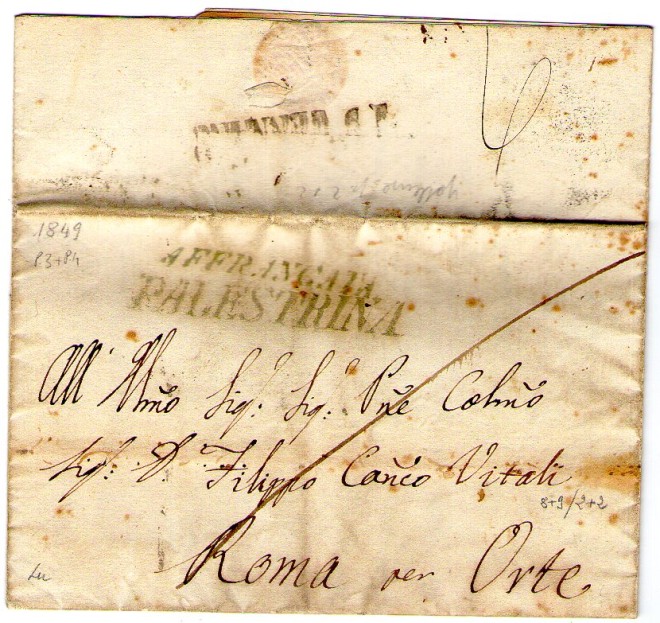 1849
P3+P4
AFFRANCATA
PALESTRINA
All' Illm̃o Sigͬ: Sigͬ: Pñe Colm̃o
Sigͬ: D. Filippo Cañco Vitali
8+9/2+2
Roma per Orte